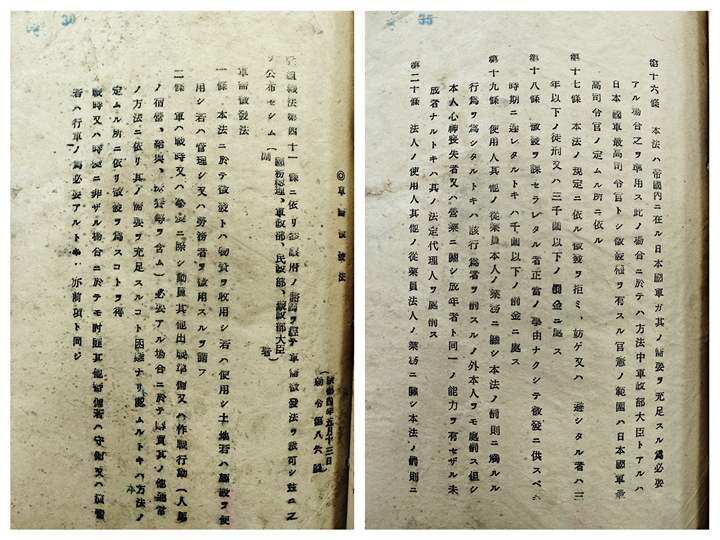 30
◎軍需徵發法
(康德四年五月十三日
勅令第八六號)
組織法第四十一條ニ依リ參議府ノ諮詢ヲ經テ軍需徵發法ヲ裁可シ玆ニ之
ヲ公布セシム
(國務總理、軍政部、民政部、
大臣
軍需徵發法
一條 本法ニ於テ徵發トハ物資ヲ收用シ若ハ使用シ土地若ハ施設ヲ使
用シ若ハ管理シ又ハ勞務者ヲ徵用スルヲ謂フ
二條 軍ハ戰時又ハ事變ニ際シ動員其ノ他出戰準備又ハ作戰行動(人馬
ノ宿營、給與、ヲ含ム)必要アル場合ニ於テ購買其ノ他通常
ノ方法ニ依リ其ノ需要ヲ充足スルコト困難ナリト認ムルトキハ本法ノ
定ムル所ニ依リ徵發ヲ爲スコトヲ得
戰時又ハ事變ニ非ザル場合ニ於テモ討匪其ノ他警備若ハ守備又ハ演習
若ハ行軍ノ爲必要アルトキ亦前項ト同ジ
35
第十六條 本法ハ帝國內ニ在ル日本國軍ガ其ノ需要ヲ充足スル爲必要
アル場合之ヲ準用ス此ノ場合ニ於テハ方法中軍政部大臣トアルハ
日本國軍最高司令官トシ徵發權ヲ有スル官憲ノ範圍ハ日本國軍最
高司令官ノ定ムル所ニ依ル
第十七條 本法ノ規定ニ依ル徵發ヲ拒ミ、妨ゲ又ハ 避シタル者ハ三
年以下ノ徒刑又ハ三千圓以下ノ罰金ニ處ス
第十八條 徵發ヲ課セラレタル者正當ノ事由ナクシテ徵發ニ供スベキ
時期ニ遲レタルトキハ千圓以下ノ罰金ニ處ス
第十九條 使用人其ノ他ノ從業員本人ノ業務ニ關シ本法ノ罰則ニ觸ルル
行爲ヲ爲シタルトキハ該行爲者ヲ罰スルノ外本人ヲモ處罰ス但シ
本人心神喪失者又ハ營業ニ關シ成年者ト同一ノ能力ヲ有セザル未
成者ナルトキハ其ノ法定代理人ヲ處罰ス
第二十條 法人ノ使用人其ノ他ノ從業員法人ノ業務ニ關シ本法ノ罰則ニ